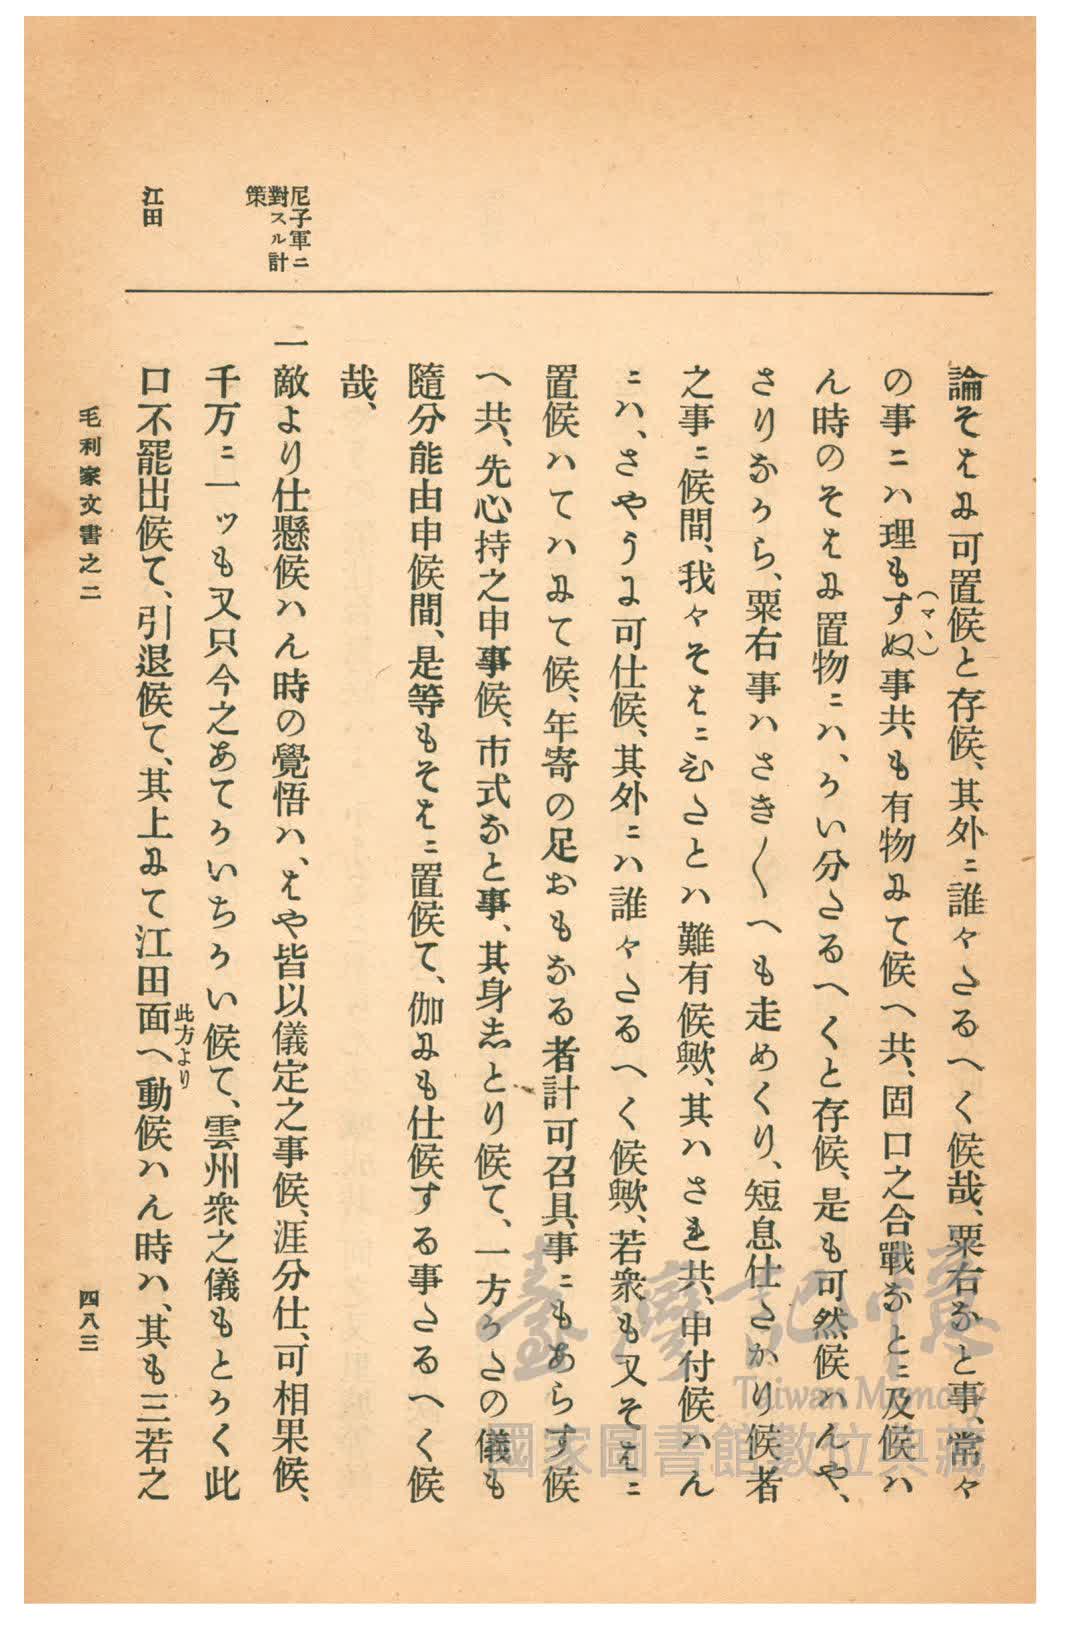 論そはに可置候と存候、其外ニ誰々たるへく候哉、粟右なと事、常々
の事ニハ理もすぬ事共も有物にて候へ共、固口之合戰なとニ及候ハ
(マヽ)
ん時のそはに置物ニハ、かい分たるへくと存候、是も可然候ハんや、
さりなから、粟右事ハさき〱へも走めくり、短息仕たかり候者
之事ニ候間、我々そはニひたとハ難有候歟、其ハされ共、申付候ハん
ニハ、さやうに可仕候、其外ニハ誰々たるへく候歟、若衆も又そはニ
置候ハてハにて候、年寄の足おもなる者計可召具事ニもあらす候
へ共、先心持之申事候、市式なと事、其身しとり候て、一方かたの儀も
隨分能由申候間、是等もそはニ置候て、伽にも仕候する事たるへく候
哉、
尼子軍ニ
對スル計
策
一敵より仕懸候ハん時の覺悟ハ、はや皆以儀定之事候、涯分仕、可相果候、
千万ニ一ッも又只今之あてかいちかい候て、雲州衆之儀もとかく此
江田
口不罷出候て、引退候て、其上にて江田面へ動候ハん時ハ、其も三若之
此方より
毛利家文書之二
四八三
臺灣記憶
Taiwan Memory
國家圖書館數位典藏